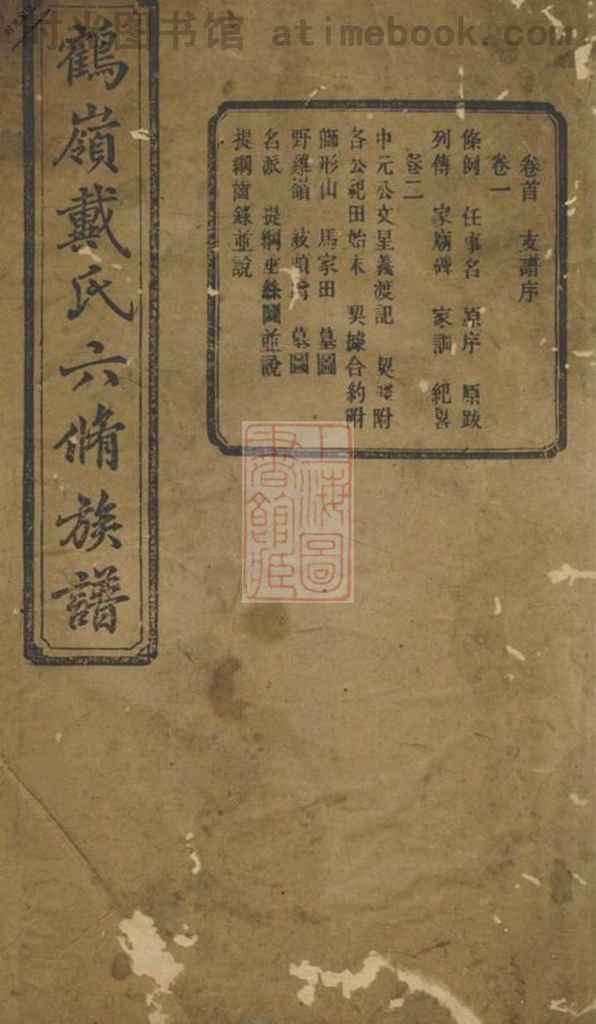 时光图书馆 atimebook.com
鶴嶺戴氏六脩族譜
卷首 支譜序
卷一
條例 任事名 原序 原跋
列傳 家廟碑 家訓 紀畧
卷二
中元公文星義渡記 契據附
各公祀田始末 契據合約附
獅形山 馬家田 墓圖
野雞嶺 墓圖
名派 提綱 垂絲圖並說
提綱齒錄並說
上海圖書館